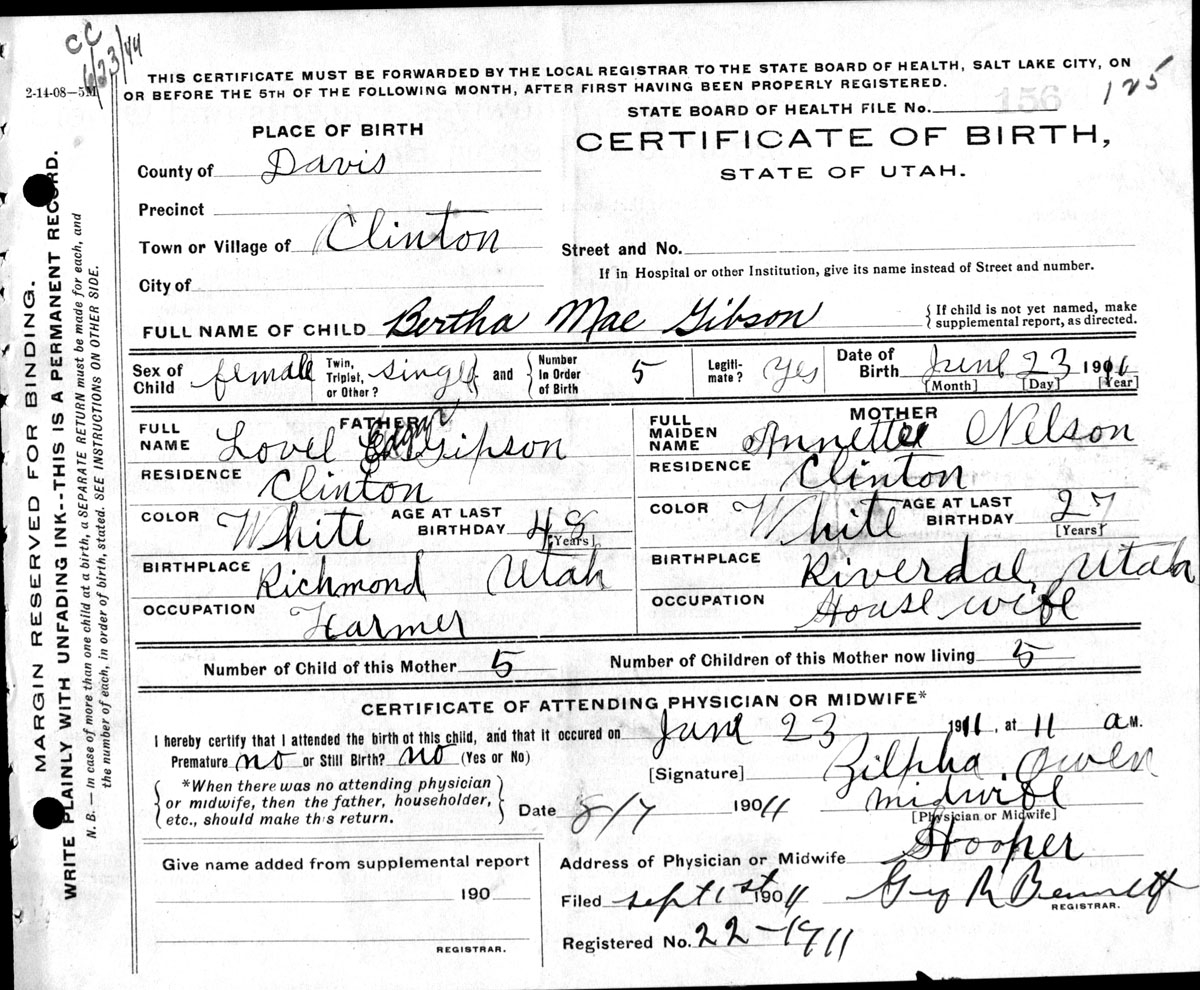 CC
6/23/44
2-14-08—5M
THIS CERTIFICATE MUST BE FORWARDED BY THE LOCAL REGISTRAR TO THE STATE BOARD OF HEALTH, SALT LAKE CITY, ON
OR BEFORE THE 5TH OF THE FOLLOWING MONTH, AFTER FIRST HAVING BEEN PROPERLY REGISTERED.
STATE BOARD OF HEALTH FILE No. 156 125
PLACE OF BIRTH
CERTIFICATE OF BIRTH,
STATE OF UTAH.
County of Davis
Precinct
Town or Village of Clinton
Street and No.
If in Hospital or other Institution, give its name instead of Street and number.
City of
FULL NAME OF CHILD Bertha Mae Gibson
{ If child is not yet named, make
supplemental report, as directed.
Sex of Child female
Twin, Triplet, or Other? single and
Number In Order of Birth 5
Legiti-mate? Yes
Date of Birth June 23 1911
[Month] [Day] [Year]
FATHER
FULL NAME Lovel Edgar Gipson
RESIDENCE Clinton
COLOR White AGE AT LAST BIRTHDAY 48 [Years]
BIRTHPLACE Richmond Utah
OCCUPATION Farmer
MOTHER
FULL MAIDEN NAME Annette Nelson
RESIDENCE Clinton
COLOR White AGE AT LAST BIRTHDAY 27 [Years]
BIRTHPLACE Riverdal, Utah
OCCUPATION House wife
Number of Child of this Mother 5 Number of Children of this Mother now living 5
CERTIFICATE OF ATTENDING PHYSICIAN OR MIDWIFE*
I hereby certify that I attended the birth of this child, and that it occured on June 23 1911, at 11 a M.
Premature no or Still Birth? no (Yes or No)
[Signature] Zilpha Owen
*When there was no attending physician
or midwife, then the father, householder,
etc., should make this return.
Date 8/7 1911 midwife
[Physician or Midwife]
Give name added from supplemental report
190
REGISTRAR.
Address of Physician or Midwife Hooper
Filed Sept 1st 1911 Bennett
REGISTRAR.
Registered No. 22-1911
MARGIN RESERVED FOR BINDING.
WRITE PLAINLY WITH UNFADING INK--THIS IS A PERMANENT RECORD.
N. B.—In case of more than one child at a birth, a SEPARATE RETURN must be made for each, and
the number of each, in order of birth, stated. SEE INSTRUCTIONS ON OTHER SIDE.